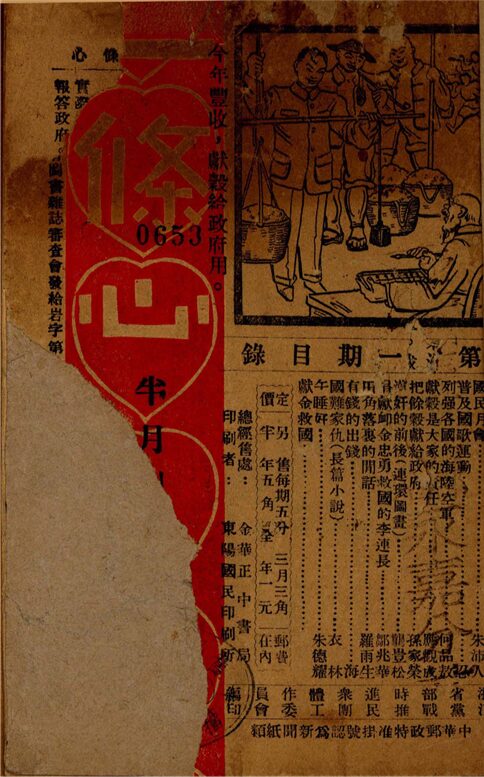 條心
條
心
半月
0653
今年豐收，獻穀給政府用。
報答政府。
圖書雜誌審查會發給岩字第
第 一期目錄
國民月會
普及國歌運動
列强各國的海陸空軍
獻穀是大家的責任
把餘穀獻給政府
奸的前後（連環圖畫）
獻卸金忠勇救國的李連長
角落裏的閒話
有錢的出錢
國難家仇（長篇小說）
午睡好
獻金救國
孫家榮
龔豈松
鄒兆華
羅雨生
海
衣林
朱德耀
定價
另售每期五分 三月三角 郵費
半年五角 全年一元 在內
總經售處： 金華正中書局
印刷者： 東陽國民印刷所
省黨部戰時推進民衆團體工作委員會編印
中華郵政特准掛號認爲新聞紙類